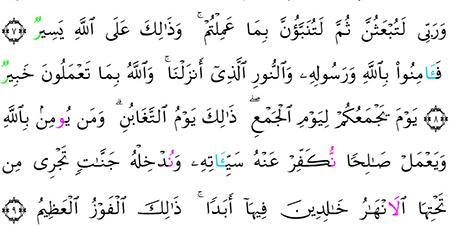 وَرَبِّى لَتُبْعَثُنَّ ثُمَّ لَتُنَبَّؤُنَّ بِمَا عَمِلْتُمْ ۚ وَذَٰلِكَ عَلَى ٱللَّهِ يَسِيرٌ ﴿٧﴾
فَـَٔامِنُوا۟ بِٱللَّهِ وَرَسُولِهِۦ وَٱلنُّورِ ٱلَّذِىٓ أَنزَلْنَا ۚ وَٱللَّهُ بِمَا تَعْمَلُونَ خَبِيرٌ
﴿٨﴾ يَوْمَ يَجْمَعُكُمْ لِيَوْمِ ٱلْجَمْعِ ۖ ذَٰلِكَ يَوْمُ ٱلتَّغَابُنِ ۗ وَمَن يُومِنۢ بِٱللَّهِ
وَيَعْمَلْ صَـٰلِحًا نُّكَفِّرْ عَنْهُ سَيِّـَٔاتِهِۦ وَنُدْخِلْهُ جَنَّـٰتٍ تَجْرِى مِن
تَحْتِهَا ٱلَانْهَـٰرُ خَـٰلِدِينَ فِيهَآ أَبَدًا ۚ ذَٰلِكَ ٱلْفَوْزُ ٱلْعَظِيمُ ﴿٩﴾